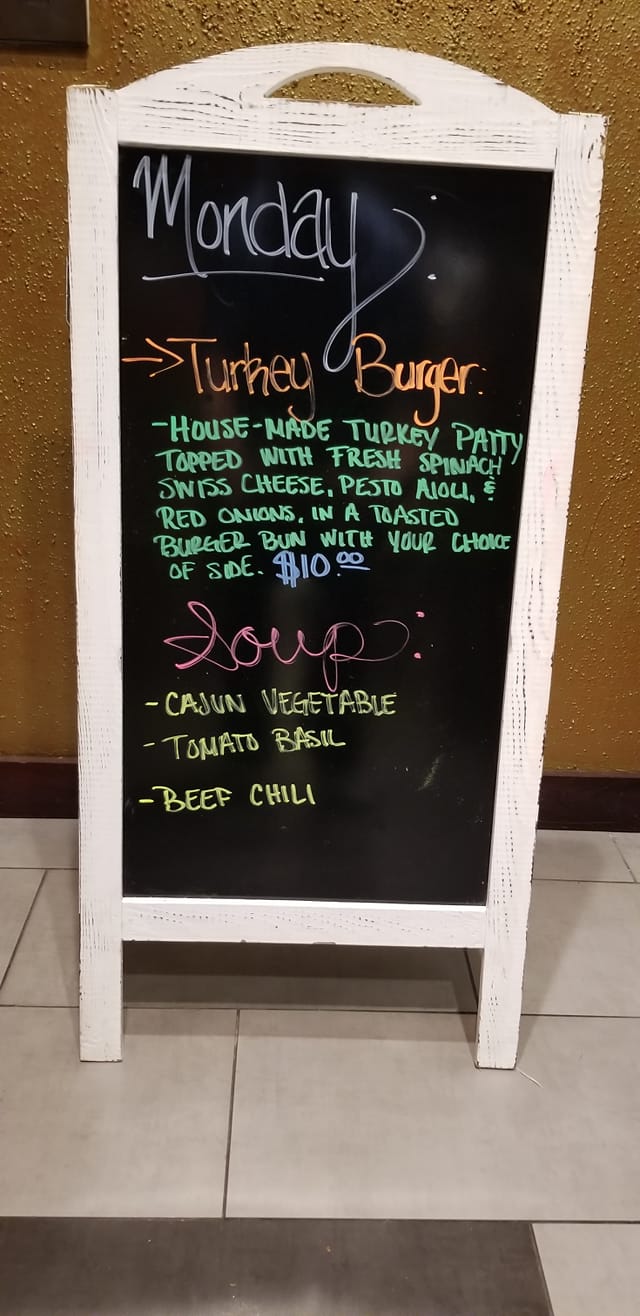 Monday:
→Turkey Burger:
-HOUSE-MADE TURKEY PATTY
TOPPED WITH FRESH SPINACH
SWISS CHEESE, PESTO AIOLI, &
RED ONIONS. IN A TOASTED
BURGER BUN WITH YOUR CHOICE
OF SIDE. $10.00
Soup:
-CAJUN VEGETABLE
-TOMATO BASIL
-BEEF CHILI